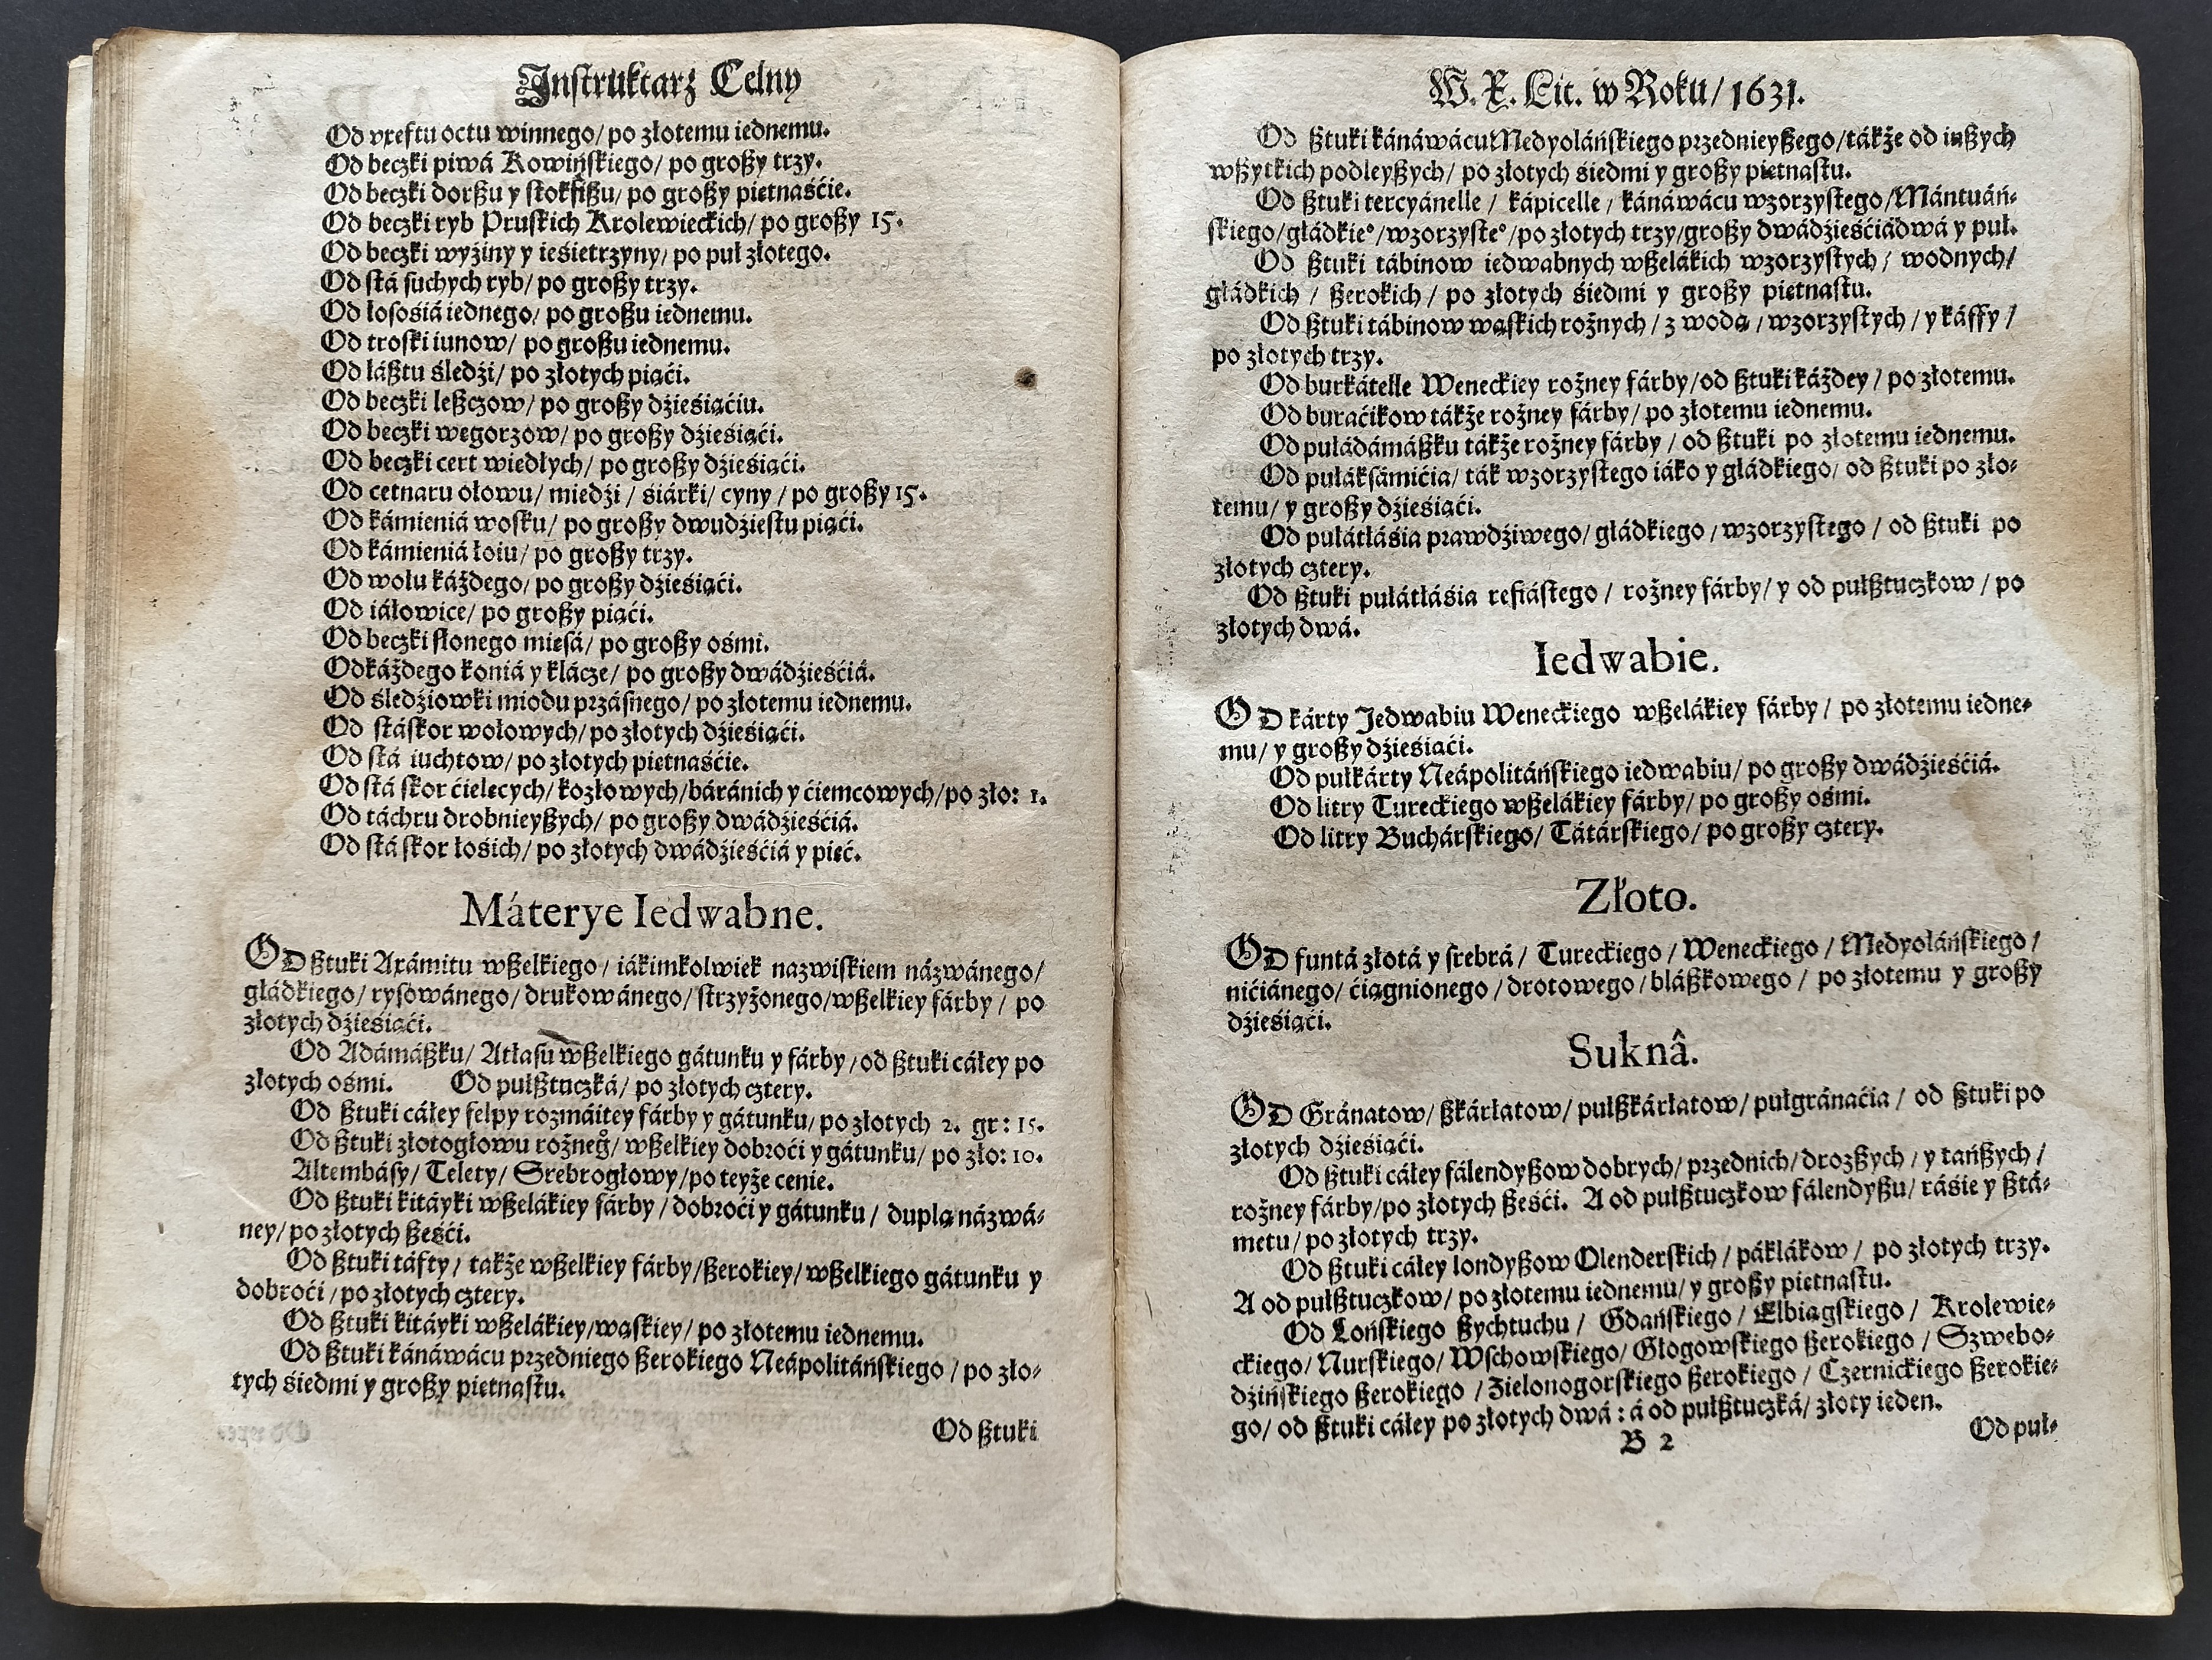 Instruktarz Celny
Od vxeftu octu winnego/ po złotemu iednemu.
Od beczki piwá Kowińskiego/ po großy trzy.
Od beczki dorßu y stokfißu/ po großy piętnaśćie.
Od beczki ryb Pruskich Krolewieckich/ po großy 15.
Od beczki wyżiny y ieśietrzyny/ po puł złotego.
Od stá suchych ryb/ po großy trzy.
Od łososiá iednego/ po großu iednemu.
Od troski iunow/ po großu iednemu.
Od łáßtu śledźi/ po złotych piąći.
Od beczki leßczow/ po großy dźieśiąćiu.
Od beczki węgorzow/ po großy dźieśiąći.
Od beczki cert wiedłych/ po großy dźieśiąći.
Od cetnaru ołowu/ miedźi / śiárki/ cyny / po großy 15.
Od kámieniá wosku/ po großy dwudźiestu piąći.
Od kámieniá łoiu/ po großy trzy.
Od wołu káżdego/ po großy dźieśiąći.
Od iáłowice/ po großy piąći.
Od beczki słonego mięsá/ po großy ośmi.
Od káżdego koniá y klácze/ po großy dwádźieśćiá.
Od śledźiowki miodu przásnego/ po złotemu iednemu.
Od stá skor wołowych/ po złotych dźieśiąći.
Od stá iuchtow/ po złotych piętnaśćie.
Od stá skor ćielęcych/ kozłowych/ báránich y ćiemcowych/ po zło: 1.
Od táchru drobnieyßych/ po großy dwádźieśćiá.
Od stá skor łośich/ po złotych dwádźieśćiá y pięć.
Máterye Iedwabne.
OD ßtuki Axámitu wßelkiego / iákimkolwiek nazwiskiem názwánego/
głádkiego/ rysowánego/ drukowánego/ strzyżonego/ wßelkiey fárby / po
złotych dźieśiąći.
Od Adámáßku/ Atłasu wßelkiego gátunku y fárby / od ßtuki cáłey po
złotych ośmi. Od pułßtuczká/ po złotych cztery.
Od ßtuki cáłey felpy rozmáitey fárby y gátunku/ po złotych 2. gr: 15.
Od ßtuki złotogłowu rożneg̊/ wßelkiey dobroći y gátunku/ po zło: 10.
Altembásy/ Telety/ Srebrogłowy/ po teyże cenie.
Od ßtuki kitáyki wßelákiey fárby / dobroći y gátunku / duplą názwá-
ney/ po złotych ßeśći.
Od ßtuki táfty/ także wßelkiey fárby/ ßerokiey/ wßelkiego gátunku y
dobroći / po złotych cztery.
Od ßtuki kitáyki wßelákiey/ wąskiey/ po złotemu iednemu.
Od ßtuki kánáwácu przedniego ßerokiego Neápolitáńskiego / po zło-
tych śiedmi y großy piętnastu.
Od ßtuki
W. X. Lit. w Roku/ 1631.
Od ßtuki kánáwácu Medyoláńskiego przednieyßego/ tákże od inßych
wßytkich podleyßych/ po złotych śiedmi y großy piętnastu.
Od ßtuki tercyánelle / kápicelle / kánáwácu wzorzystego/ Mántuáń-
skiego/ głádkie°/ wzorzyste°/ po złotych trzy/ großy dwádźieśćiá dwá y puł.
Od ßtuki tábinow iedwabnych wßelákich wzorzystych / wodnych/
głádkich / ßerokich / po złotych śiedmi y großy piętnastu.
Od ßtuki tábinow wąskich rożnych / z wodą / wzorzystych / y káffy /
po złotych trzy.
Od burkátelle Weneckiey rożney fárby/ od ßtuki káżdey / po złotemu.
Od buraćikow tákże rożney fárby/ po złotemu iednemu.
Od pułádámáßku tákże rożney fárby / od ßtuki po złotemu iednemu.
Od pułáksámićia/ ták wzorzystego iáko y głádkiego/ od ßtuki po zło-
temu/ y großy dźieśiąći.
Od pułátłásia prawdźiwego/ głádkiego / wzorzystego / od ßtuki po
złotych cztery.
Od ßtuki pułátłásia refiástego / rożney fárby/ y od pułßtuczkow / po
złotych dwá.
Iedwabie.
OD kárty Jedwabiu Weneckiego wßelákiey fárby / po złotemu iedne-
mu/ y großy dźieśiąći.
Od pułkárty Neápolitáńskiego iedwabiu/ po großy dwádźieśćiá.
Od litry Tureckiego wßelákiey fárby/ po großy ośmi.
Od litry Buchárskiego/ Tátárskiego/ po großy cztery.
Złoto.
OD funtá złotá y srebrá / Tureckiego / Weneckiego / Medyoláńskiego /
nićiánego/ ćiągnionego / drotowego / bláßkowego / po złotemu y großy
dźieśiąći.
Suknâ.
OD Gránatow/ ßkárłatow/ pułßkárłatow/ pułgránaćia / od ßtuki po
złotych dźieśiąći.
Od ßtuki cáłey fálendyßow dobrych/ przednich/ drozßych / y tańßych /
rożney fárby/ po złotych ßeśći. A od pułßtuczkow fálendyßu/ rásie y ßtá-
metu/ po złotych trzy.
Od ßtuki cáłey londyßow Olenderskich / páklákow / po złotych trzy.
A od pułßtuczkow/ po złotemu iednemu/ y großy piętnastu.
Od Lońskiego ßychtuchu / Gdańskiego / Elbiągskiego / Krolewie-
ckiego/ Nurskiego/ Wschowskiego/ Głogowskiego ßerokiego / Szwebo-
dźińskiego ßerokiego / Zielonogorskiego ßerokiego / Czernickiego ßerokie-
go/ od ßtuki cáłey po złotych dwá : á od pułßtuczká/ złoty ieden.
B 2
Od puł-